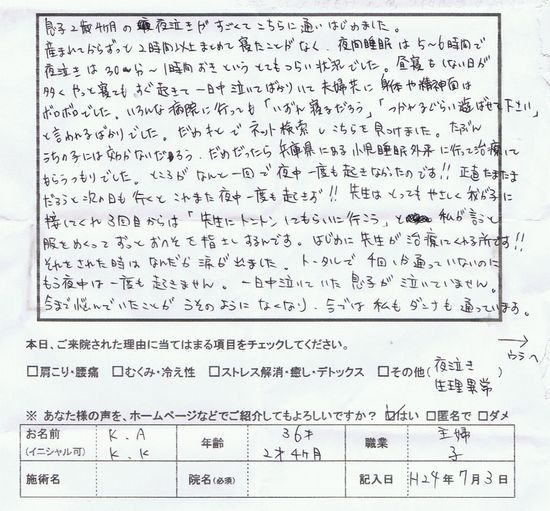 息子2歳4ヶ月の夜泣きがすごくてこちらに通いはじめました。
産まれてからずっと2時間以上まとめて寝たことがなく、夜間睡眠は5〜6時間で
夜泣きは30分〜1時間おきというとてもつらい状況でした。昼寝をしない日が
多くやっと寝てもすぐ起きて一日中泣いてばかりいて夫婦共に身体や精神面は
ボロボロでした。いろんな病院に行っても「いずれ寝るだろう」「つかれるぐらい遊ばせて下さい」
と言われるばかりでした。だめもとでネット検索しこちらを見つけました。たぶん
うちの子には効かないだろう、だめだったら兵庫県にある小児睡眠外来に行って治療して
もらうつもりでした。ところがなんと一回で夜中一度も起きなかったのです!!正直たまたま
だろうと次の日も行くとこれまた夜中一度も起きず!!先生はとってもやさしく我が子に
接してくれ3回目からは「先生にトントンしてもらいに行こう」と 私が言うと
服をめくってずっとおへそを指さしするんです。はじめに先生が治療してくれる所です!!
それをされた時はなんだか涙が出ました。トータルで4回しか通っていないのに
もう夜中は一度も起きません。一日中泣いていた息子が泣いていません。
今まで悩んでいたことがうそのようになくなり、今では私もダンナも通っています。
→ウラへ
本日、ご来院された理由に当てはまる項目をチェックしてください。
□肩こり・腰痛 □むくみ・冷え性 □ストレス解消・癒し・デトックス □その他(夜泣き 生理異常)
※ あなた様の声を、ホームページなどでご紹介してもよろしいですか? ☑はい □匿名で □ダメ
お名前(イニシャル可) K.A K.K 年齢 36才 2才4ヶ月 職業 主婦 子
施術名 院名(必須) 記入日 H24年7月3日